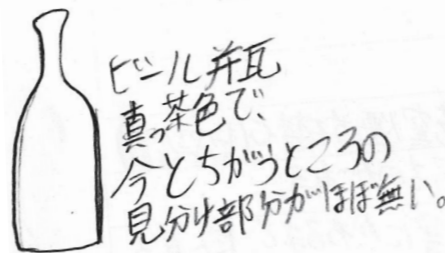 ビール瓶
真っ茶色で、
今とちがうところの
見分け部分がほぼ無い。